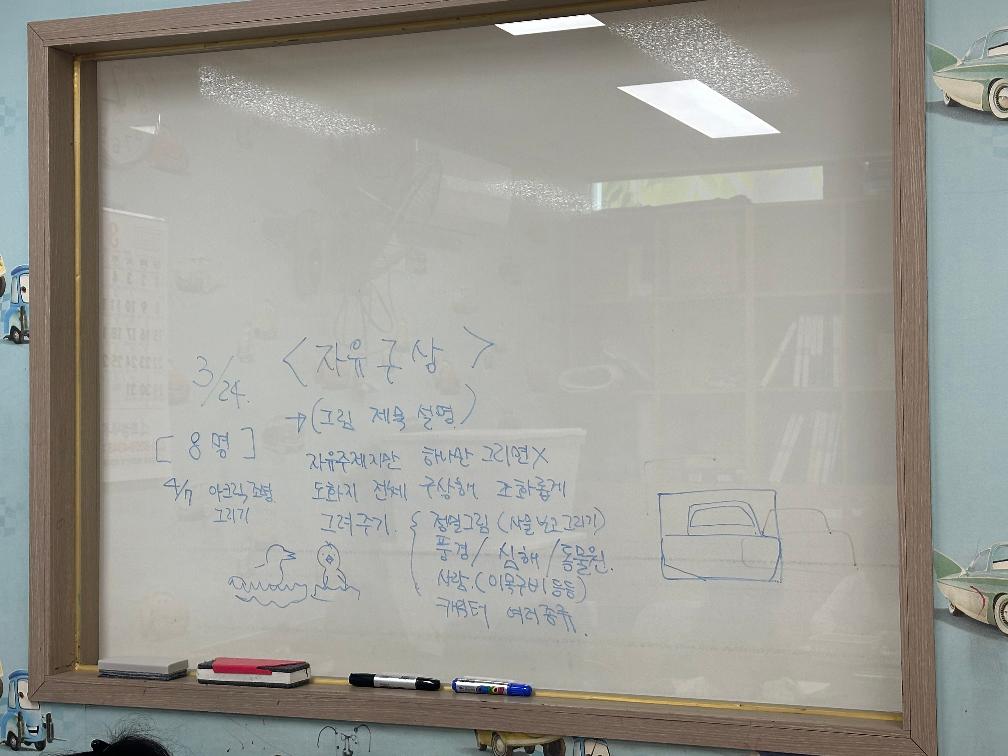 3/24.
<자유구상>
→(그림 제목 설명)
[8명]
자유주제지만 하나만 그리면X
4/7 아크릴
도화지 전체 구상해 조화롭게
그리기
그려주기. { 정밀그림 (사물 놓고 그리기)
풍경/심해/동물원.
사람.(이목구비 등등)
캐릭터 여러종류.